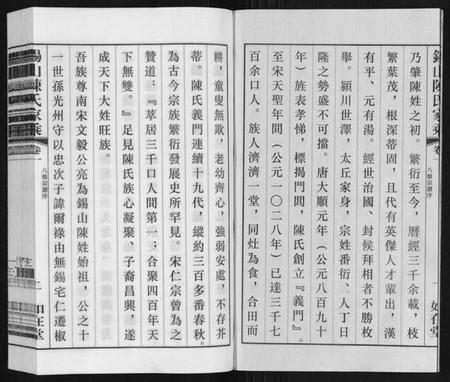 錫山陳氏家乘
八修宗譜序
乃肇陳姓之初。繁衍至今，曆經三千余載，枝
繁葉茂，根深蒂固，且代有英傑人才輩出，漢
有平、元有湯。經世治國、封候拜相者不勝枚
舉。潁川世澤，太丘家身，宗姓番衍、人丁日
隆之勢盛不可擋。唐大順元年（公元八百九十
年）旌表孝悌，標揭門閭，陳氏創立『義門』。
至宋天聖年間（公元一〇二八年）已達三千七
百余口人。族人濟濟一堂，同灶為食，合田而
耕，童叟無欺，老幼齊心，強弱安處，不存芥
蒂。陳氏義門連續十九代，縱約三百多番春秋。
為古今宗族繁衍發展史所罕見。宋仁宗曾為之
贊道：『萃居三千口人間第一；合聚四百年天
下無雙。』足見陳氏族心凝聚、子裔昌興，遂
成天下大姓旺族。
吾族尊南宋文毅公亮為錫山陳姓始祖，公之十
一世孫光州守以忠次子諱爾祿由無錫宅仁遷椒
錫山陳氏家乘
卷一
八修宗譜序
二